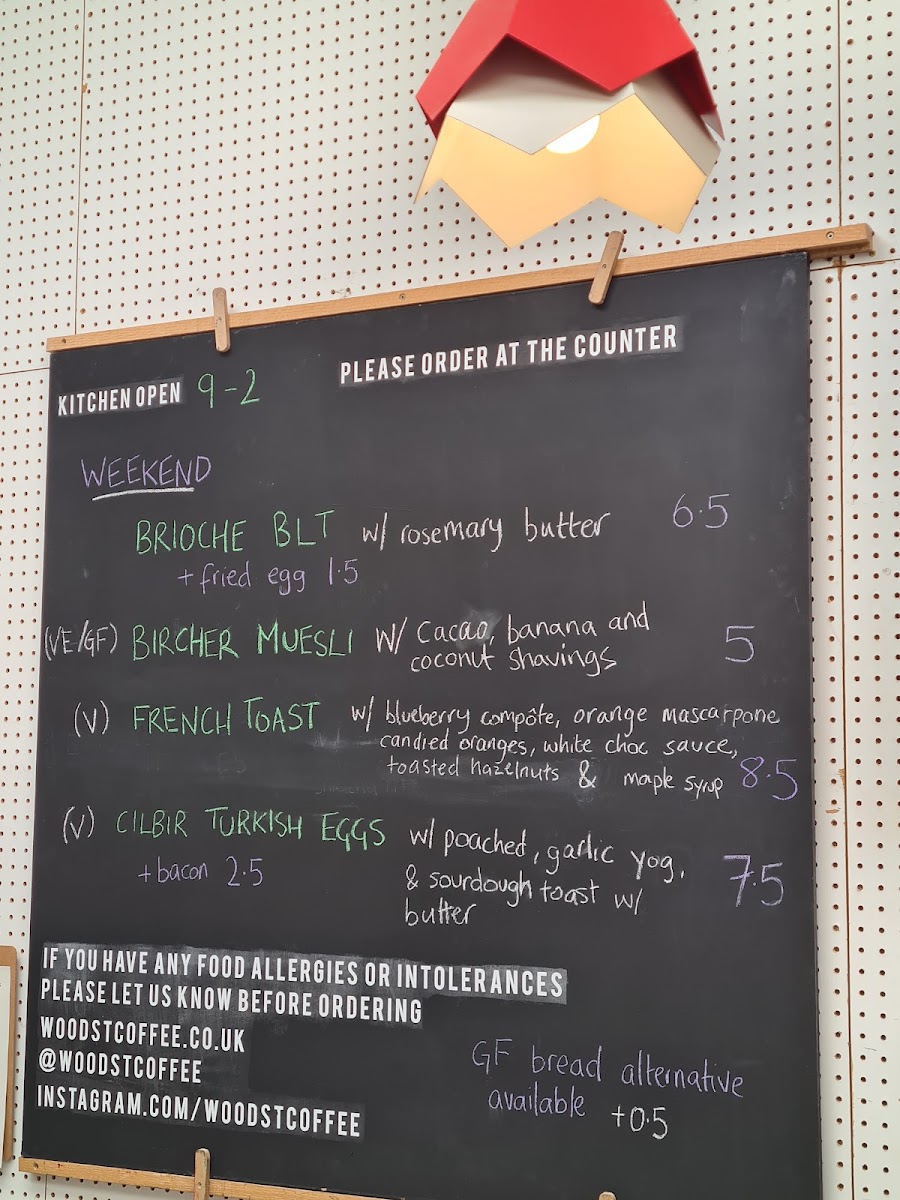 PLEASE ORDER AT THE COUNTER
KITCHEN OPEN 9-2
WEEKEND
BRIOCHE BLT w/ rosemary butter 6.5
+ fried egg 1.5
(VE/GF) BIRCHER MUESLI w/ cacao, banana and
coconut shavings 5
(V) FRENCH TOAST w/ blueberry compôte, orange mascarpone
candied oranges, white choc sauce,
toasted hazelnuts & maple syrup 8.5
(V) CILBIR TURKISH EGGS w/ poached, garlic yog,
+ bacon 2.5 & sourdough toast w/ 7.5
butter
IF YOU HAVE ANY FOOD ALLERGIES OR INTOLERANCES
PLEASE LET US KNOW BEFORE ORDERING
WOODSTCOFFEE.CO.UK
@WOODSTCOFFEE
INSTAGRAM.COM/WOODSTCOFFEE
GF bread alternative
available +0.5